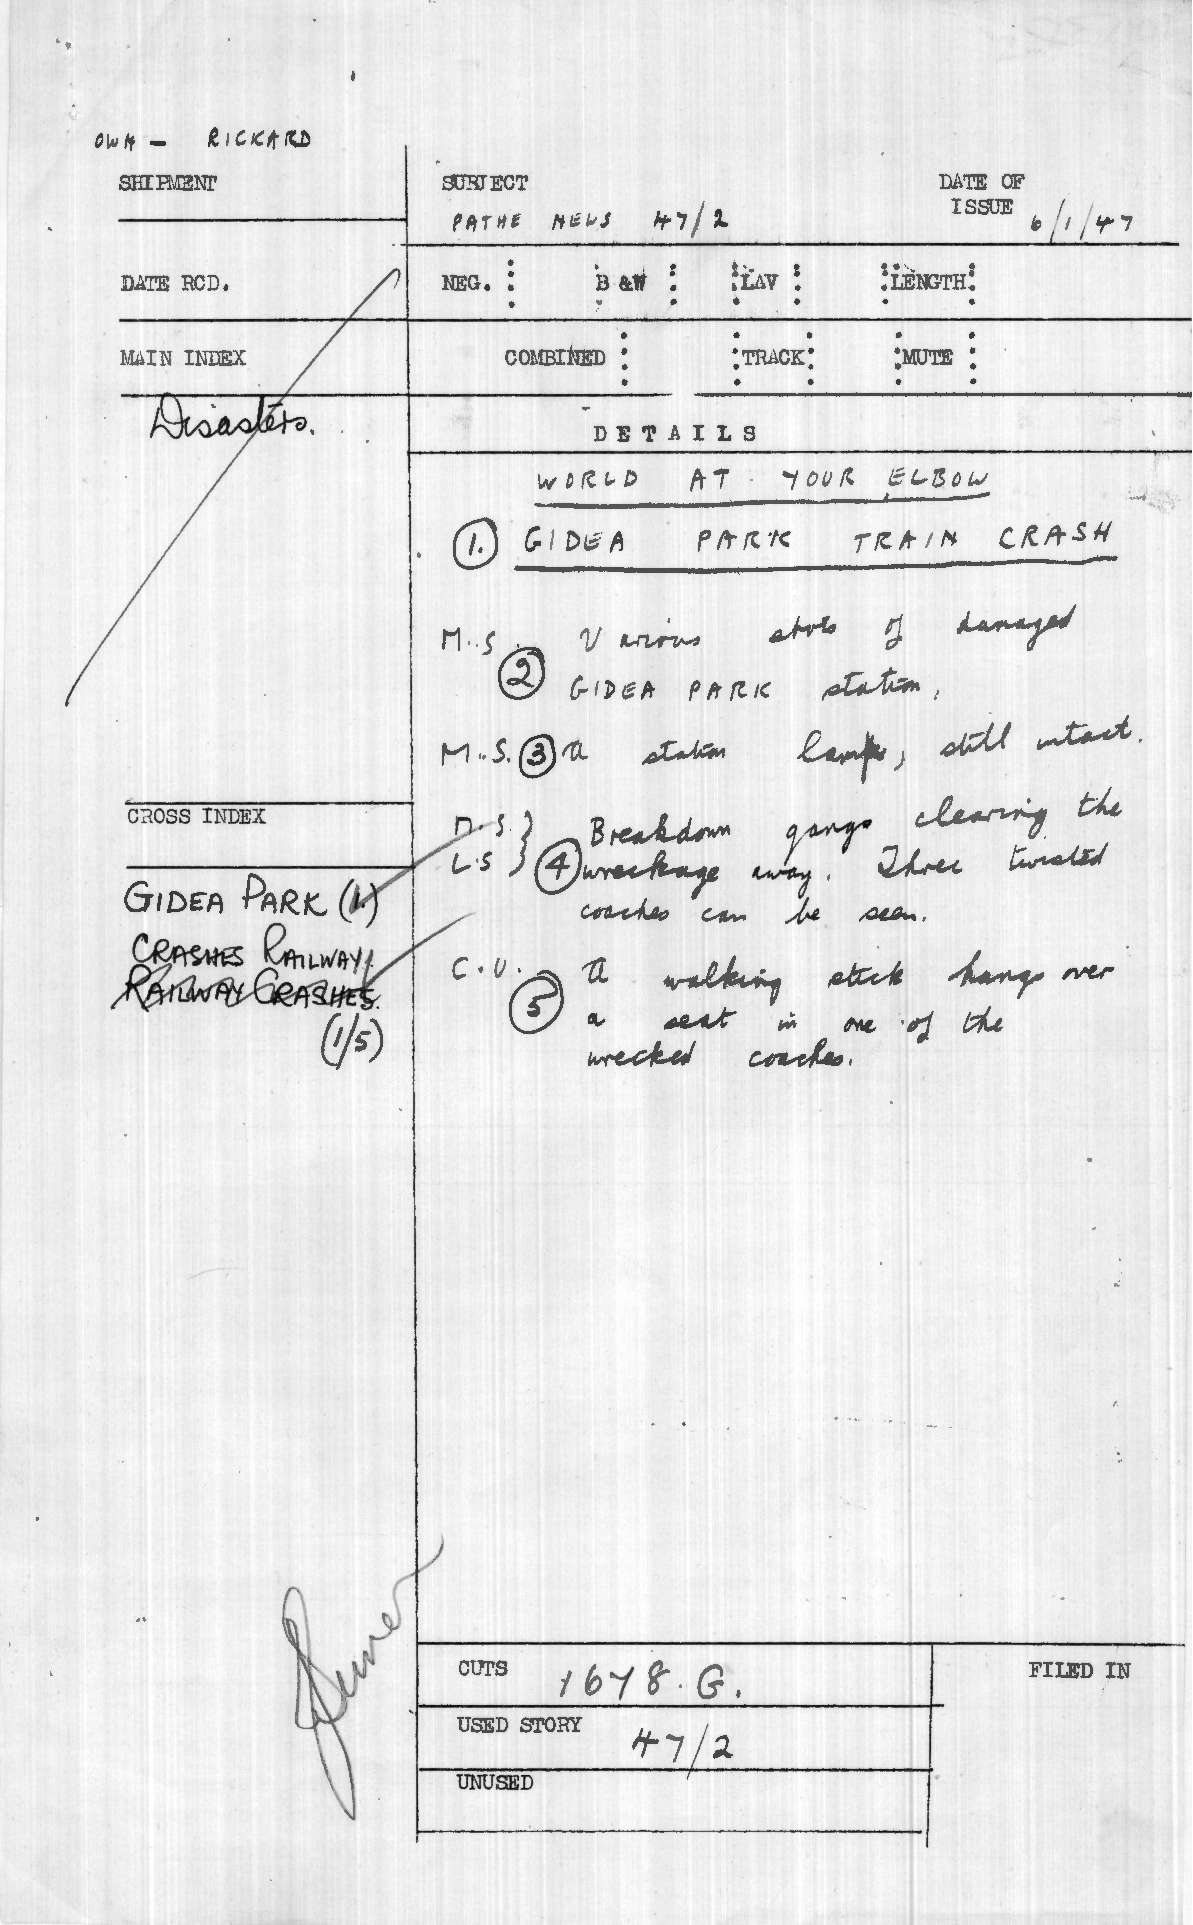 OWN - RICKARD
SHIPMENT
SUBJECT
DATE OF
ISSUE 6/1/47
PATHE NEWS 47/2
DATE RCD.
NEG. B &W LAV LENGTH
MAIN INDEX
COMBINED TRACK MUTE
Disasters.
DETAILS
WORLD AT YOUR ELBOW
1. GIDEA PARK TRAIN CRASH
M.S. 2 Various shots of damaged
GIDEA PARK station.
M.S. 3 A station lamp, still intact.
CROSS INDEX
M.S.
L.S
4 Breakdown gangs clearing the
wreckage away. Three twisted
coaches can be seen.
GIDEA PARK (1.)
CRASHES RAILWAY
RAILWAY CRASHES.
(1/5)
C.U. 5 A walking stick hangs over
a seat in one of the
wrecked coaches.
CUTS 1678.G.
FILED IN
USED STORY 47/2
UNUSED